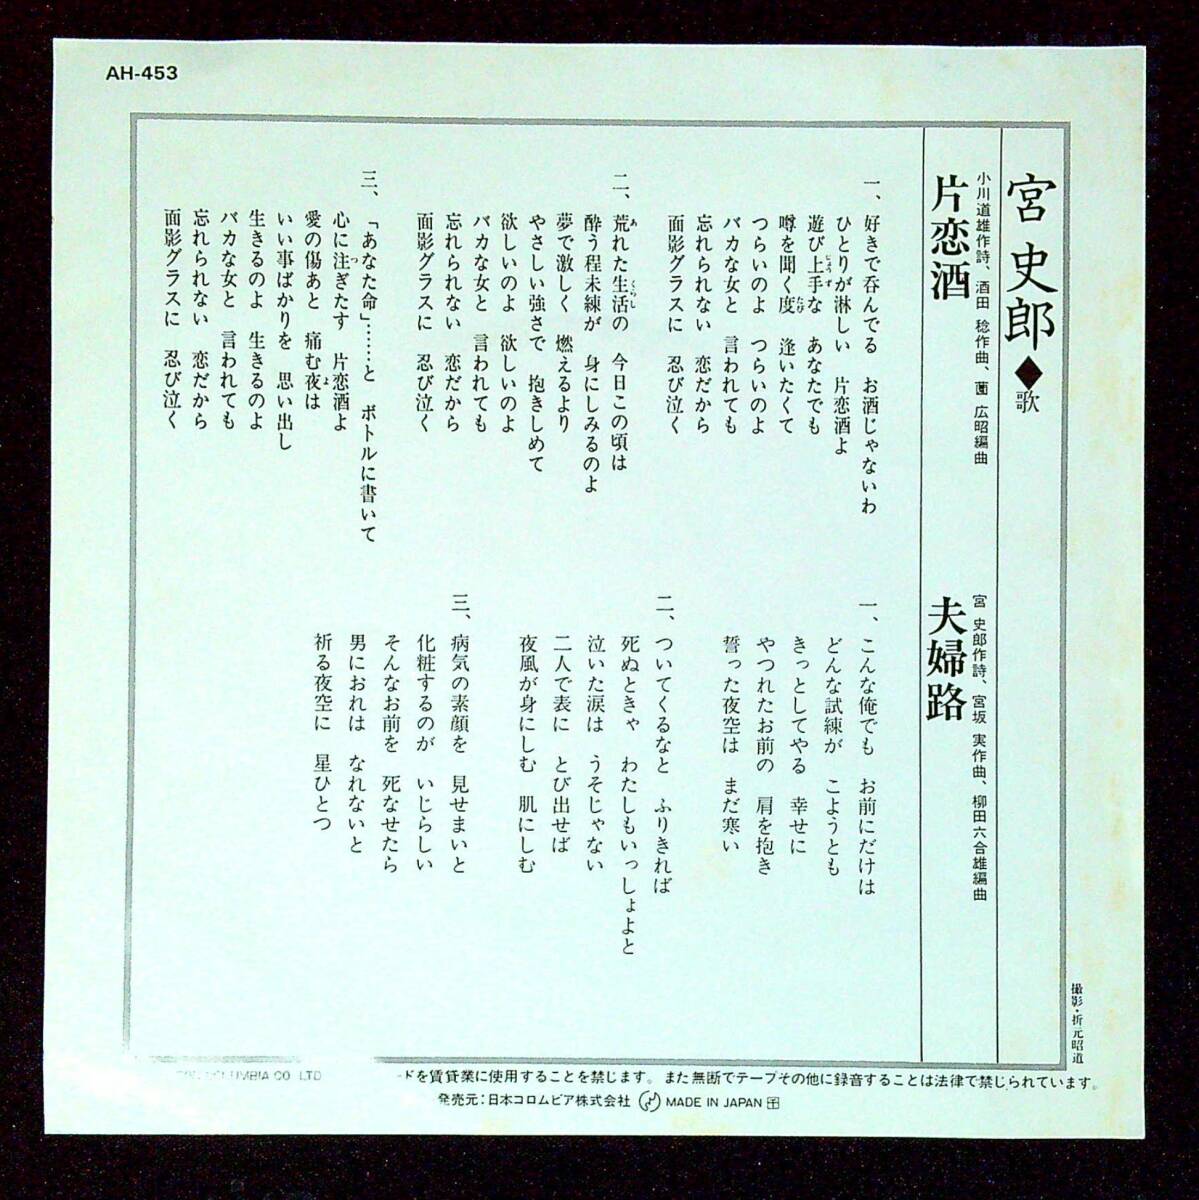 AH-453
宮 史郎◆歌
片恋酒
小川道雄作詩、酒田 稔作曲、薗 広昭編曲
一、好きで呑んでる お酒じゃないわ
ひとりが淋しい 片恋酒よ
遊び上手な あなたでも
噂を聞く度 逢いたくて
つらいのよ つらいのよ
バカな女と 言われても
忘れられない 恋だから
面影グラスに 忍び泣く
二、荒れた生活の 今日この頃は
酔う程未練が 身にしみるのよ
夢で激しく 燃えるより
やさしい強さで 抱きしめて
欲しいのよ 欲しいのよ
バカな女と 言われても
忘れられない 恋だから
面影グラスに 忍び泣く
三、「あなた命」………と ボトルに書いて
心に注ぎたす 片恋酒よ
愛の傷あと 痛む夜は
いい事ばかりを 思い出し
生きるのよ 生きるのよ
バカな女と 言われても
忘れられない 恋だから
面影グラスに 忍び泣く
夫婦路
宮 史郎作詩、宮坂 実作曲、柳田六合雄編曲
一、こんな俺でも お前にだけは
どんな試練が こようとも
きっとしてやる 幸せに
やつれたお前の 肩を抱き
誓った夜空は まだ寒い
二、ついてくるなと ふりきれば
死ぬときゃ わたしもいっしょよと
泣いた涙は うそじゃない
二人で表に とび出せば
夜風が身にしむ 肌にしむ
三、病気の素顔を 見せまいと
化粧するのが いじらしい
そんなお前を 死なせたら
男におれは なれないと
祈る夜空に 星ひとつ
撮影・折元昭道
COLUMBIA CO. LTD.
ードを賃貸業に使用することを禁じます。また無断でテープその他に録音することは法律で禁じられています。
発売元：日本コロムビア株式会社 MADE IN JAPAN